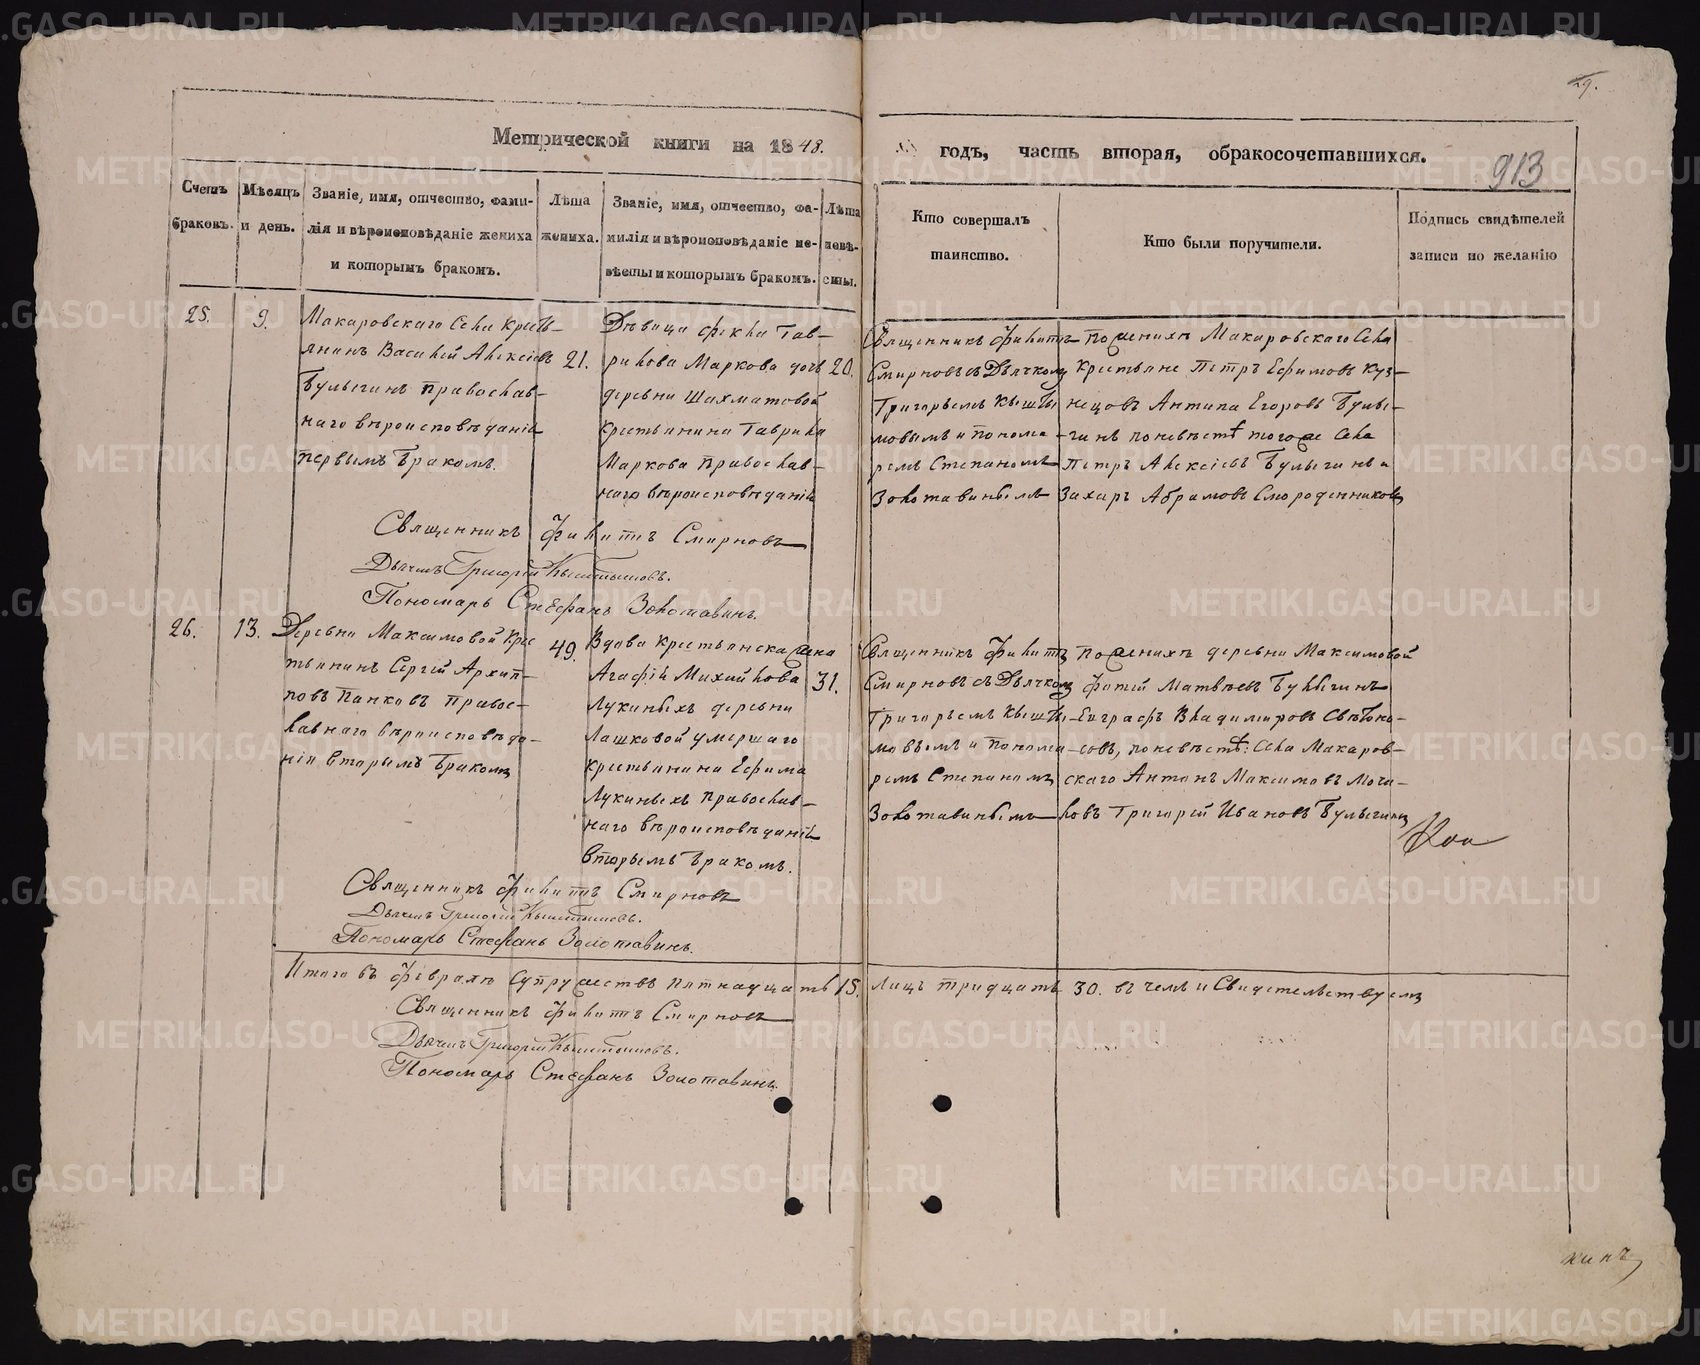 29.
Метрической книги на 1848.
годъ, часть вторая, обракосочетавшихся.
913
Счетъ браковъ.
Мѣсяцъ и день.
Званіе, имя, отчество, фами-
лія и вѣроисповѣданіе жениха
и которымъ бракомъ.
Лѣта жениха.
Званіе, имя, отчество, фа-
милія и вѣроисповѣданіе не-
вѣсты и которымъ бракомъ.
Лѣта невѣ-
сты.
Кто совершалъ
таинство.
Кто были поручители.
Подпись свидѣтелей
записи по желанію
25.
9.
Макаровскаго Села Кресть-
янинъ Василей Алексіевъ
Булыгинъ православ-
наго вѣроисповѣданія
первымъ бракомъ.
21.
Дѣвица Фекла Гав-
рилова Маркова дочь
деревни Шахматовой
крестьянина Гаврила
Маркова Православ-
наго вѣроисповѣданія
20.
Священникъ Филиппъ
Смирновъ съ Дьячкомъ
Григорьемъ Кышты-
мовымъ и понома-
ремъ Степаномъ
Золотавинымъ
По женихѣ Макаровскаго Села
крестьяне Петръ Ефимовъ Куз-
нецовъ Антипа Егоровъ Булы-
гинъ по невѣстѣ того же Села
Петръ Алексіевъ Булыгинъ и
Захаръ Абрамовъ Смородинниковъ
Священникъ Филиппъ Смирновъ
Дьячекъ Григорій Кыштымовъ.
Пономарь Стефанъ Золотавинъ.
26.
13.
Деревни Максимовой Крес
тьянинъ Сергей Архип-
повъ Панковъ правос-
лавнаго вѣроисповѣда-
нія вторымъ бракомъ
49.
Вдова крестьянска жена
Агафія Михайлова
Лукиныхъ деревни
Лашковой умершаго
крестьянина Ефима
Лукиныхъ православ-
наго вѣроисповѣданія
вторымъ бракомъ.
31.
Священникъ Филиппъ
Смирновъ съ Дьячкомъ
Григорьемъ Кышты-
мовымъ и понома-
ремъ Степаномъ
Золотавинымъ
По женихѣ деревни Максимовой
Фотей Матвѣевъ Булыгинъ
Евграфъ Владимировъ Свѣтоно-
совъ, по невѣстѣ: Села Макаров-
скаго Антонъ Максимовъ Моча-
ловъ Григорей Ивановъ Булыгинъ
Священникъ Филиппъ Смирновъ
Дьячекъ Григорій Кыштымовъ.
Пономарь Стефанъ Золотавинъ.
Итого въ Февралѣ супружествъ пятнадцать 15. Лицъ тридцать 30. въ чемъ и Свидетельствуемъ
Священникъ Филиппъ Смирновъ
Дьячекъ Григорій Кыштымовъ.
Пономарь Стефанъ Золотавинъ.
кинъ
METRIKI.GASO-URAL.RU